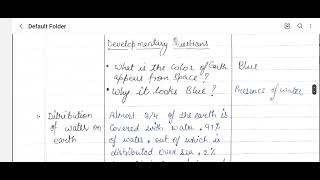 Default Folder
Developmentary Questions
• What is the color of Earth
appears from space?
Blue
• Why it looks Blue?
Presence of water
Ditribution
of water on
earth
Almost 3/4 of the earth is
covered with water. 97%
of water. out of which is
distributed over sea. 2%